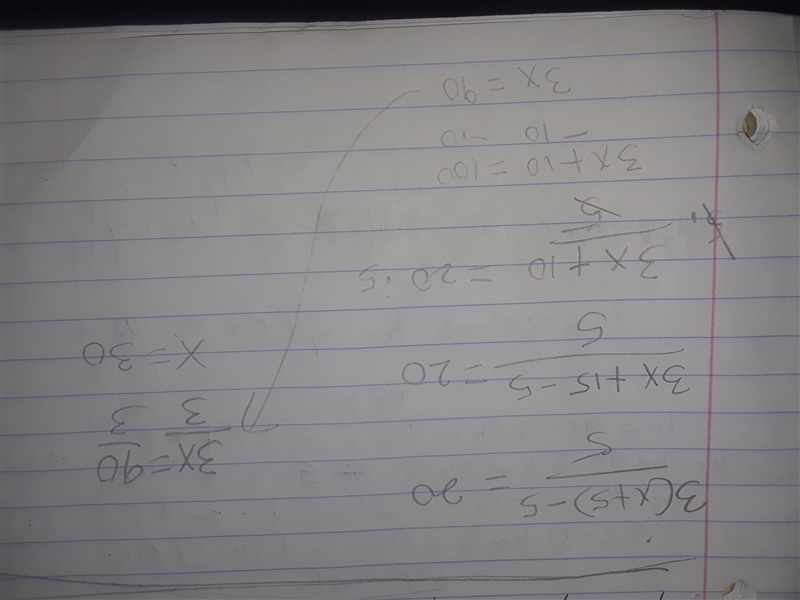 3(x+5)-5
――― = 20
5
3x+15-5
――― = 20
5
5· 3x+10
――― = 20·5
5
3x+10 = 100
-10 -10
3x = 90
3x = 90
― ―
3 3
x = 30